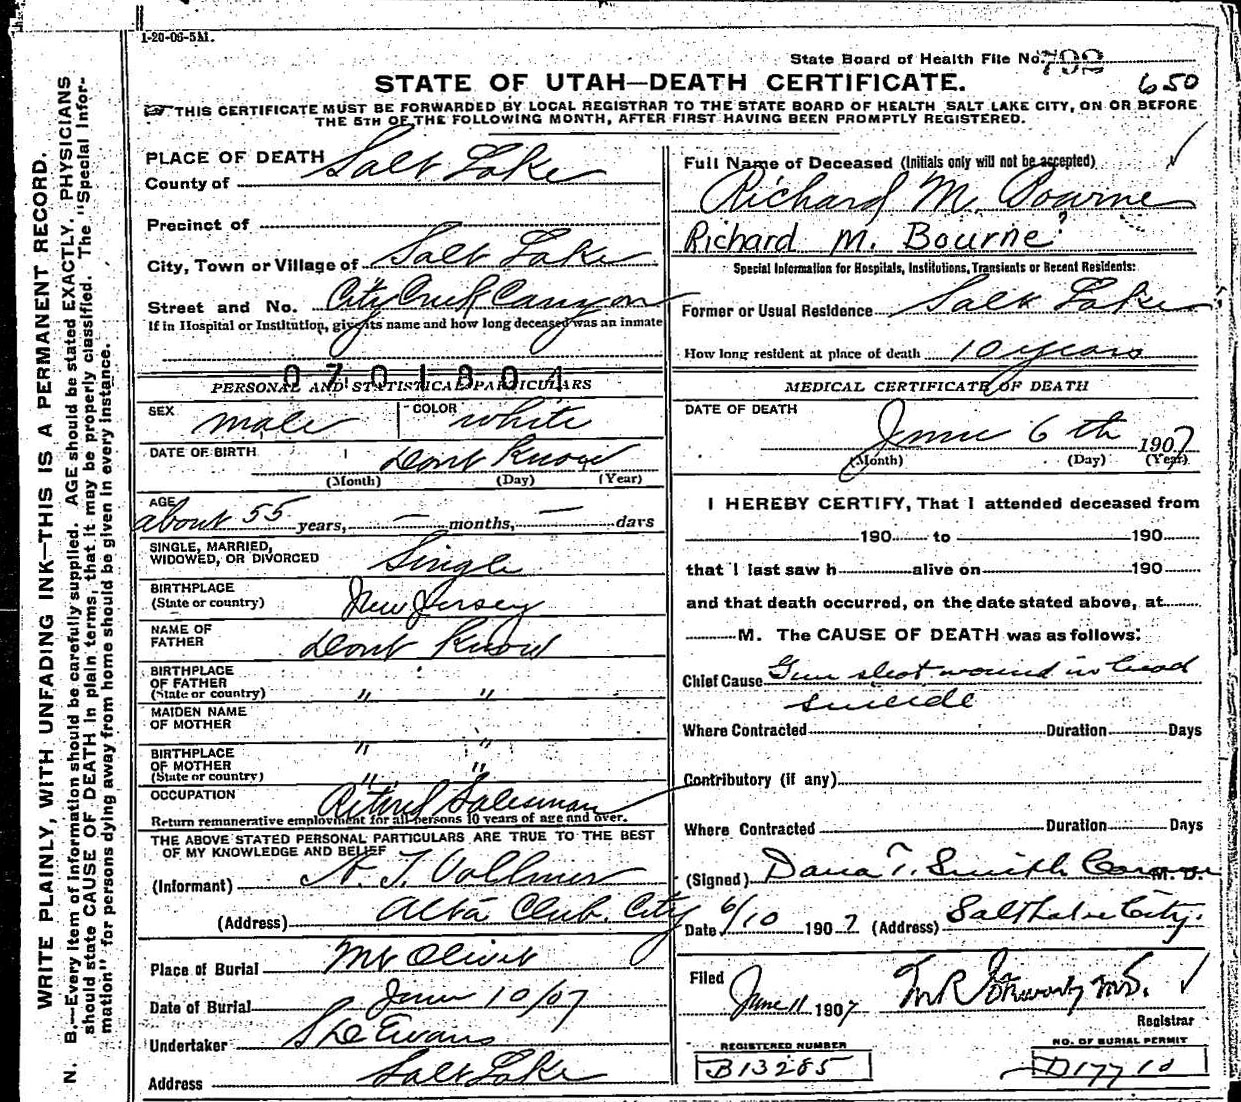 1-20-06-5M.
State Board of Health File No. 792
650
STATE OF UTAH—DEATH CERTIFICATE.
THIS CERTIFICATE MUST BE FORWARDED BY LOCAL REGISTRAR TO THE STATE BOARD OF HEALTH SALT LAKE CITY, ON OR BEFORE
THE 5TH OF THE FOLLOWING MONTH, AFTER FIRST HAVING BEEN PROMPTLY REGISTERED.
WRITE PLAINLY, WITH UNFADING INK—THIS IS A PERMANENT RECORD.
N. B.—Every item of information should be carefully supplied. AGE should be stated EXACTLY. PHYSICIANS
should state CAUSE OF DEATH in plain terms, that it may be properly classified. The "Special Infor-
mation" for persons dying away from home should be given in every instance.
PLACE OF DEATH
County of Salt Lake
Precinct of
City, Town or Village of Salt Lake
Street and No. City Creek Canyon
If in Hospital or Institution, give its name and how long deceased was an inmate
0701804
PERSONAL AND STATISTICAL PARTICULARS
SEX male COLOR white
DATE OF BIRTH Dont Know
(Month) (Day) (Year)
AGE about 55 years, — months, — days
SINGLE, MARRIED,
WIDOWED, OR DIVORCED Single
BIRTHPLACE
(State or country) New Jersey
NAME OF
FATHER Dont Know
BIRTHPLACE
OF FATHER
(State or country) " "
MAIDEN NAME
OF MOTHER " "
BIRTHPLACE
OF MOTHER
(State or country) " "
OCCUPATION Retired Salesman
Return remunerative employment for all persons 10 years of age and over.
THE ABOVE STATED PERSONAL PARTICULARS ARE TRUE TO THE BEST
OF MY KNOWLEDGE AND BELIEF
(Informant) T. Vollmer
(Address) Alta Club. City
Place of Burial Mt Olivet
Date of Burial June 10/07
Undertaker Evans
Address Salt Lake
Full Name of Deceased (Initials only will not be accepted)
Richard M. Bourne
Richard M. Bourne
Special Information for Hospitals, Institutions, Transients or Recent Residents:
Former or Usual Residence Salt Lake
How long resident at place of death 10 years
MEDICAL CERTIFICATE OF DEATH
DATE OF DEATH
June 6th 1907
(Month) (Day) (Year)
I HEREBY CERTIFY, That I attended deceased from
190 to 190
that I last saw h alive on 190
and that death occurred, on the date stated above, at
M. The CAUSE OF DEATH was as follows:
Chief Cause Gun shot wound in head
suicide
Where Contracted Duration Days
Contributory (if any)
Where Contracted Duration Days
(Signed) Dana T. Smith Coroner M. D.
Date 6/10 1907 (Address) Salt Lake City.
Filed
June 11 1907 M.D.
Registrar
REGISTERED NUMBER
B13285
NO. OF BURIAL PERMIT
D17710